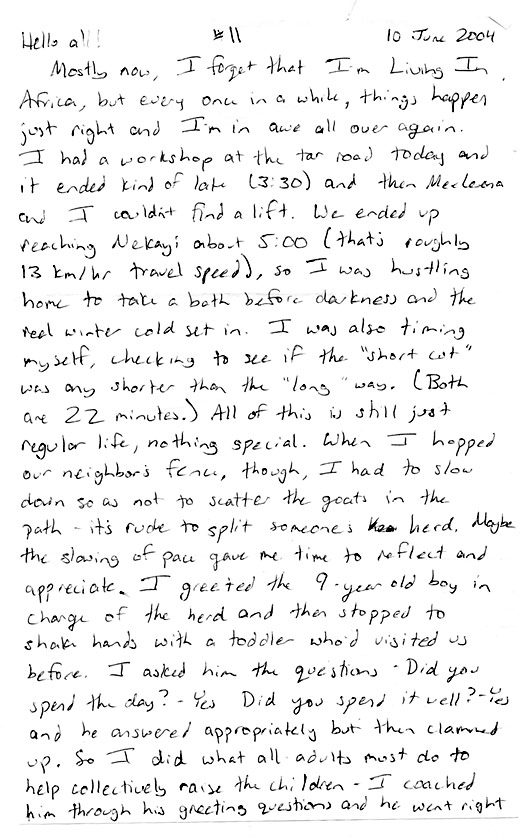 Hello all! #11 10 June 2004
Mostly now, I forget that I'm Living In
Africa, but every once in a while, things happen
just right and I'm in awe all over again.
I had a workshop at the tar road today and
it ended kind of late (3:30) and then Meeleena
and I couldn't find a lift. We ended up
reaching Nekayi about 5:00 (that's roughly
13 km/hr travel speed), so I was hustling
home to take a bath before darkness and the
real winter cold set in. I was also timing
myself, checking to see if the "short cut"
was any shorter than the "long" way. (Both
are 22 minutes.) All of this is still just
regular life, nothing special. When I hopped
our neighbor's fence, though, I had to slow
down so as not to scatter the goats in the
path - it's rude to split someone's herd. Maybe
the slowing of pace gave me time to reflect and
appreciate. I greeted the 9-year old boy in
charge of the herd and then stopped to
shake hands with a toddler who'd visited us
before. I asked him the questions - Did you
spend the day? - Yes Did you spend it well? - Yes
and he answered appropriately but then clammed
up. So I did what all adults must do to
help collectively raise the children - I coached
him through his greeting questions and he went right